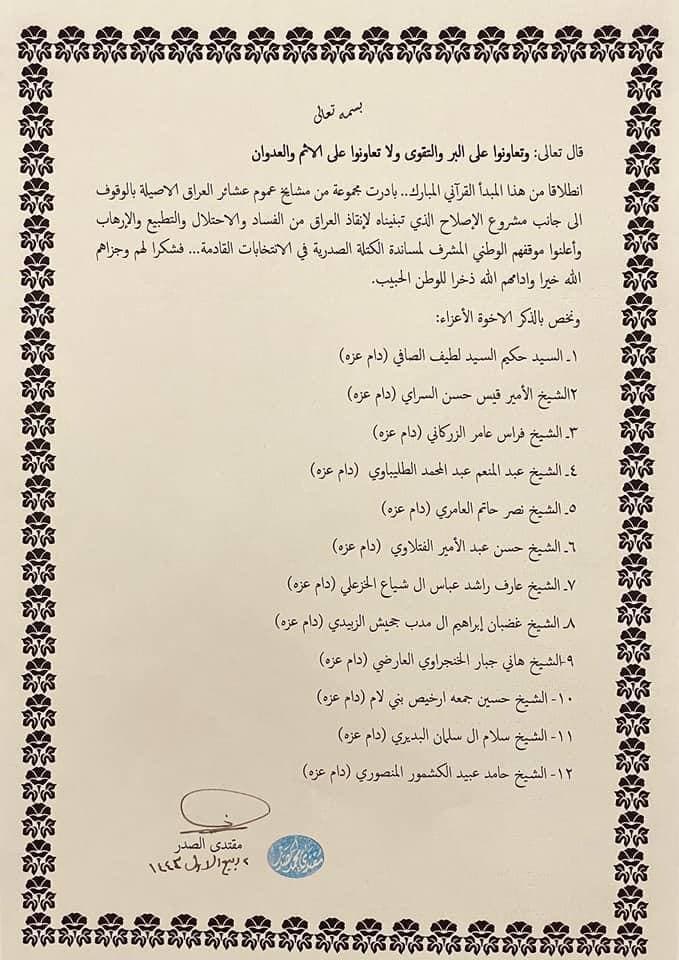 بسمه تعالى
قال تعالى: وتعاونوا على البر والتقوى ولا تعاونوا على الاثم والعدوان
انطلاقا من هذا المبدأ القرآني المبارك.. بادرت مجموعة من مشايخ عموم عشائر العراق الاصيلة بالوقوف
الى جانب مشروع الإصلاح الذي تبنيناه لإنقاذ العراق من الفساد والاحتلال والتطبيع والإرهاب
وأعلنوا موقفهم الوطني المشرف لمساندة الكتلة الصدرية في الانتخابات القادمة... فشكرا لهم وجزاهم
الله خيرا وادامهم الله ذخرا للوطن الحبيب.
ونخص بالذكر الاخوة الأعزاء:
١ـ السيد حكيم السيد لطيف الصافي (دام عزه)
٢الشيخ الأمير قيس حسن السراي (دام عزه)
٣ـ الشيخ فراس عامر الزركاني (دام عزه)
٤ـ الشيخ عبد المنعم عبد المحمد الطليباوي (دام عزه)
٥ـ الشيخ نصر حاتم العامري (دام عزه)
٦ـ الشيخ حسن عبد الأمير الفتلاوي (دام عزه)
٧ـ الشيخ عارف راشد عباس ال شياع الخزعلي (دام عزه)
٨ـ الشيخ غضبان إبراهيم ال مدب جحيش الزبيدي (دام عزه)
٩-الشيخ هاني جبار الخنجراوي العارضي (دام عزه)
١٠- الشيخ حسين جمعه ارخيص بني لام (دام عزه)
١١- الشيخ سلام ال سلمان البديري (دام عزه)
١٢- الشيخ حامد عبيد الكشمور المنصوري (دام عزه)
مقتدى الصدر
٢ ربيع الاول ١٤٤٣